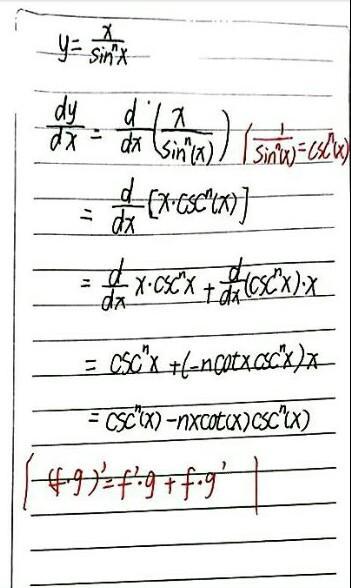 y = x/sinⁿx
dy/dx = d/dx (x/sinⁿ(x)) [1/sinⁿ(x) = cscⁿ(x)
= d/dx [x·cscⁿ(x)]
= d/dx x·cscⁿx + d/dx (cscⁿx)·x
= cscⁿx + (-n cotx cscⁿx)x
= cscⁿ(x) - nxcot(x)cscⁿ(x)
[(f·g)' = f'·g + f·g']